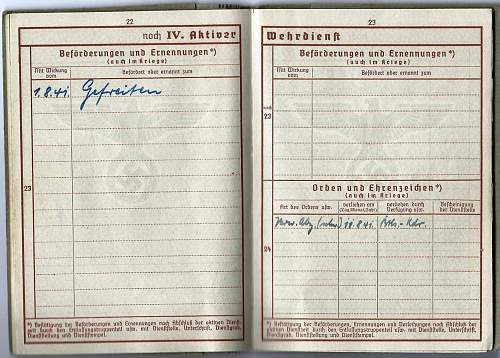 22
noch IV. Aktiver
Beförderungen und Ernennungen*)
(auch im Kriege)
Mit Wirkung vom
Befördert oder ernannt zum
1.8.41. Gefreiten
23
*) Bestätigung der Beförderungen und Ernennungen nach Abschluß der aktiven Dienst-
zeit durch den Entlassungstruppenteil usw. mit Dienststelle, Unterschrift, Dienstgrad,
Dienststellung und Dienststempel.
23
Wehrdienst
Beförderungen und Ernennungen*)
(auch im Kriege)
Mit Wirkung vom
Befördert oder ernannt zum
Orden und Ehrenzeichen*)
(auch im Kriege)
Art des Ordens usw.
verliehen am
(Tag, Monat, Jahr)
verliehen durch
Verfügung usw.
Bescheinigung
der Dienststelle
Verw. Abz. 11.8.41. Kdr.
24
*) Bestätigung der Beförderungen und Ernennungen und Verleihungen nach Abschluß der
aktiven Dienstzeit durch den Entlassungstruppenteil usw. mit Dienststelle, Unterschrift,
Dienstgrad, Dienststellung und Dienststempel.